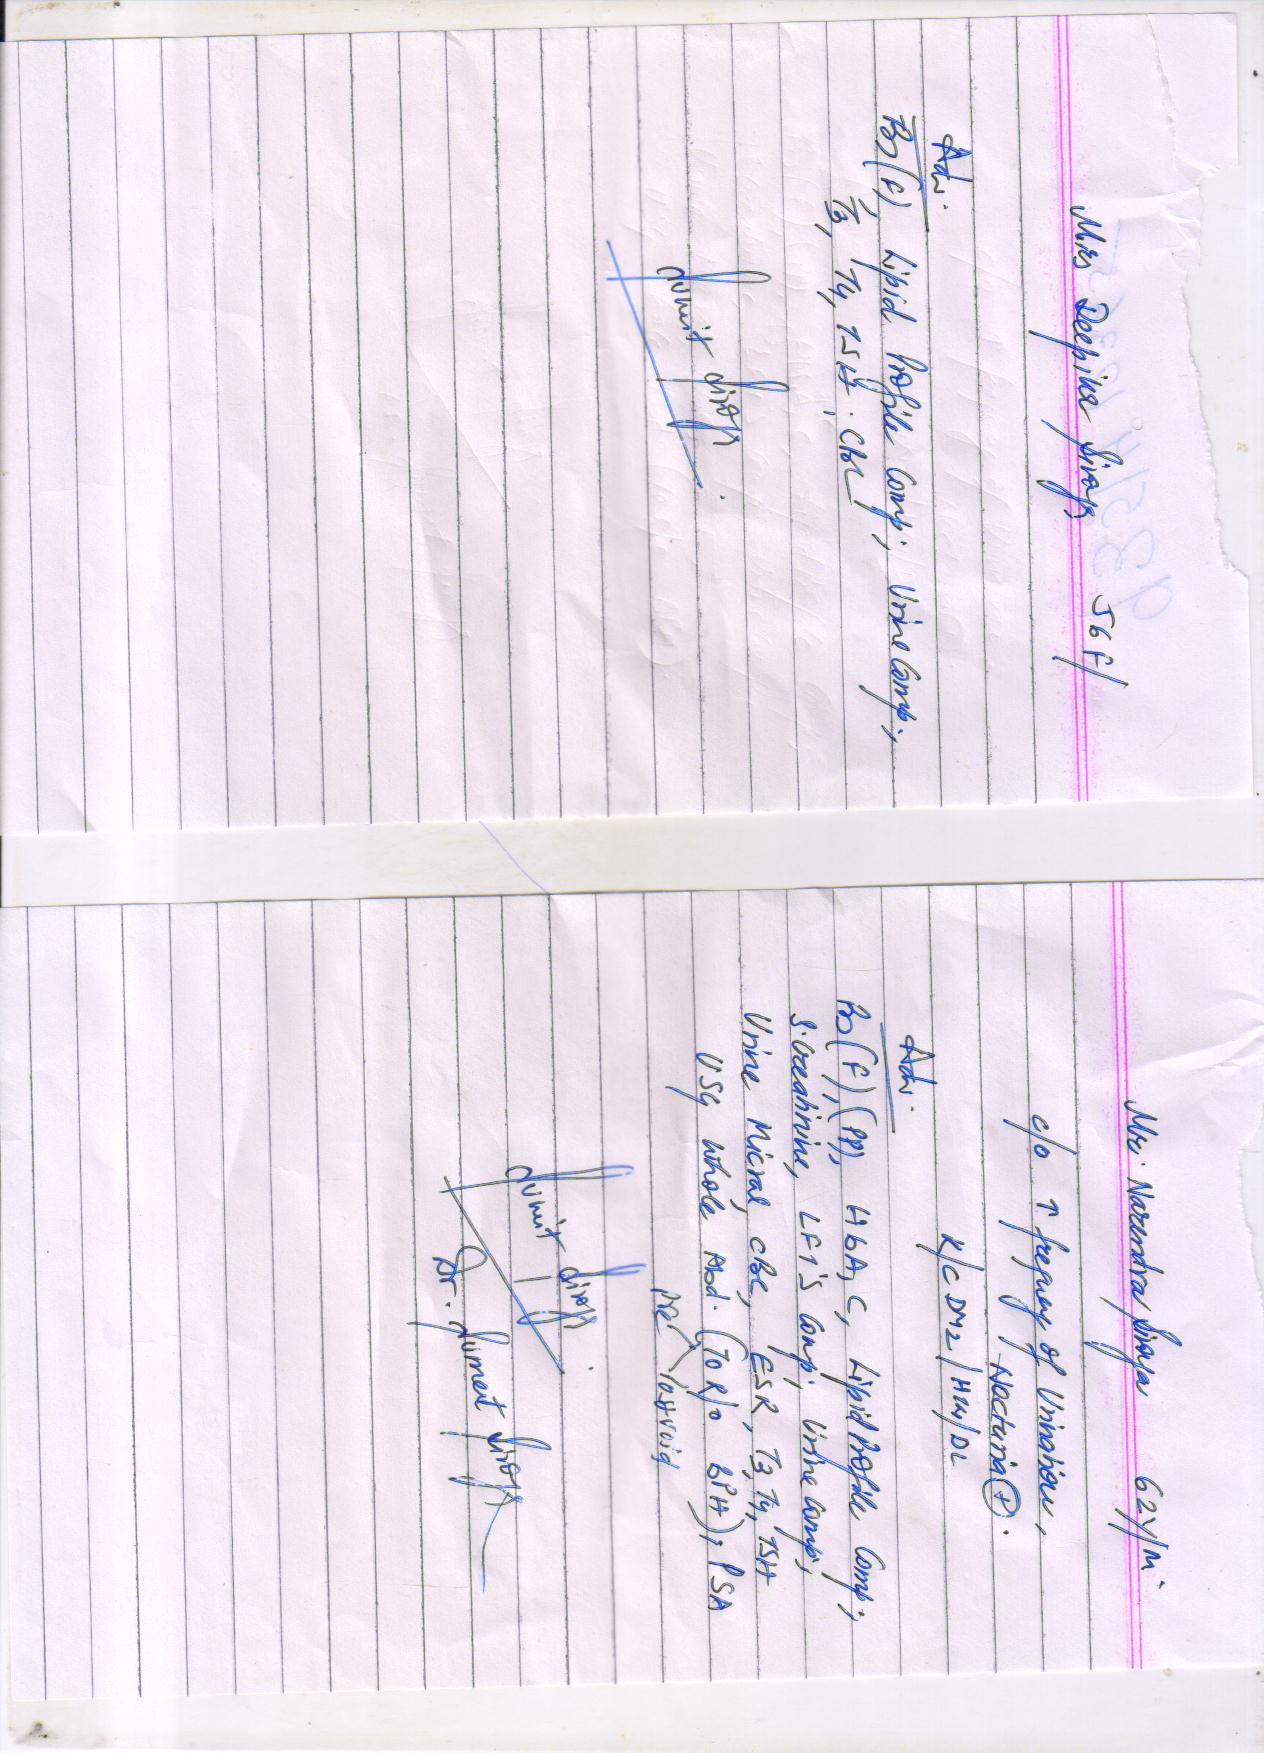 Mrs Deepika Siroya 56 F/
Adv.
BS(F) Lipid Profile Comp; Urine Comp.,
T3, T4, TSH, CBC
Sumit Siroya
Mr. Narendra Siroya 62Y/M
c/o ↑ frequency of Urination,
Nocturia (+).
K/C DM2/HTN/DL
Adv.
BS(F),(PP), HbA1C, Lipid Profile Comp;
S. Creatinine, LFT'S Comp; Urine Comp;
Urine Micral, CBC, ESR, T3, T4, TSH
USG whole Abd. (To R/o BPH), PSA
Pre Postvoid
Sumit Siroya
Dr. Sumeet Siroya